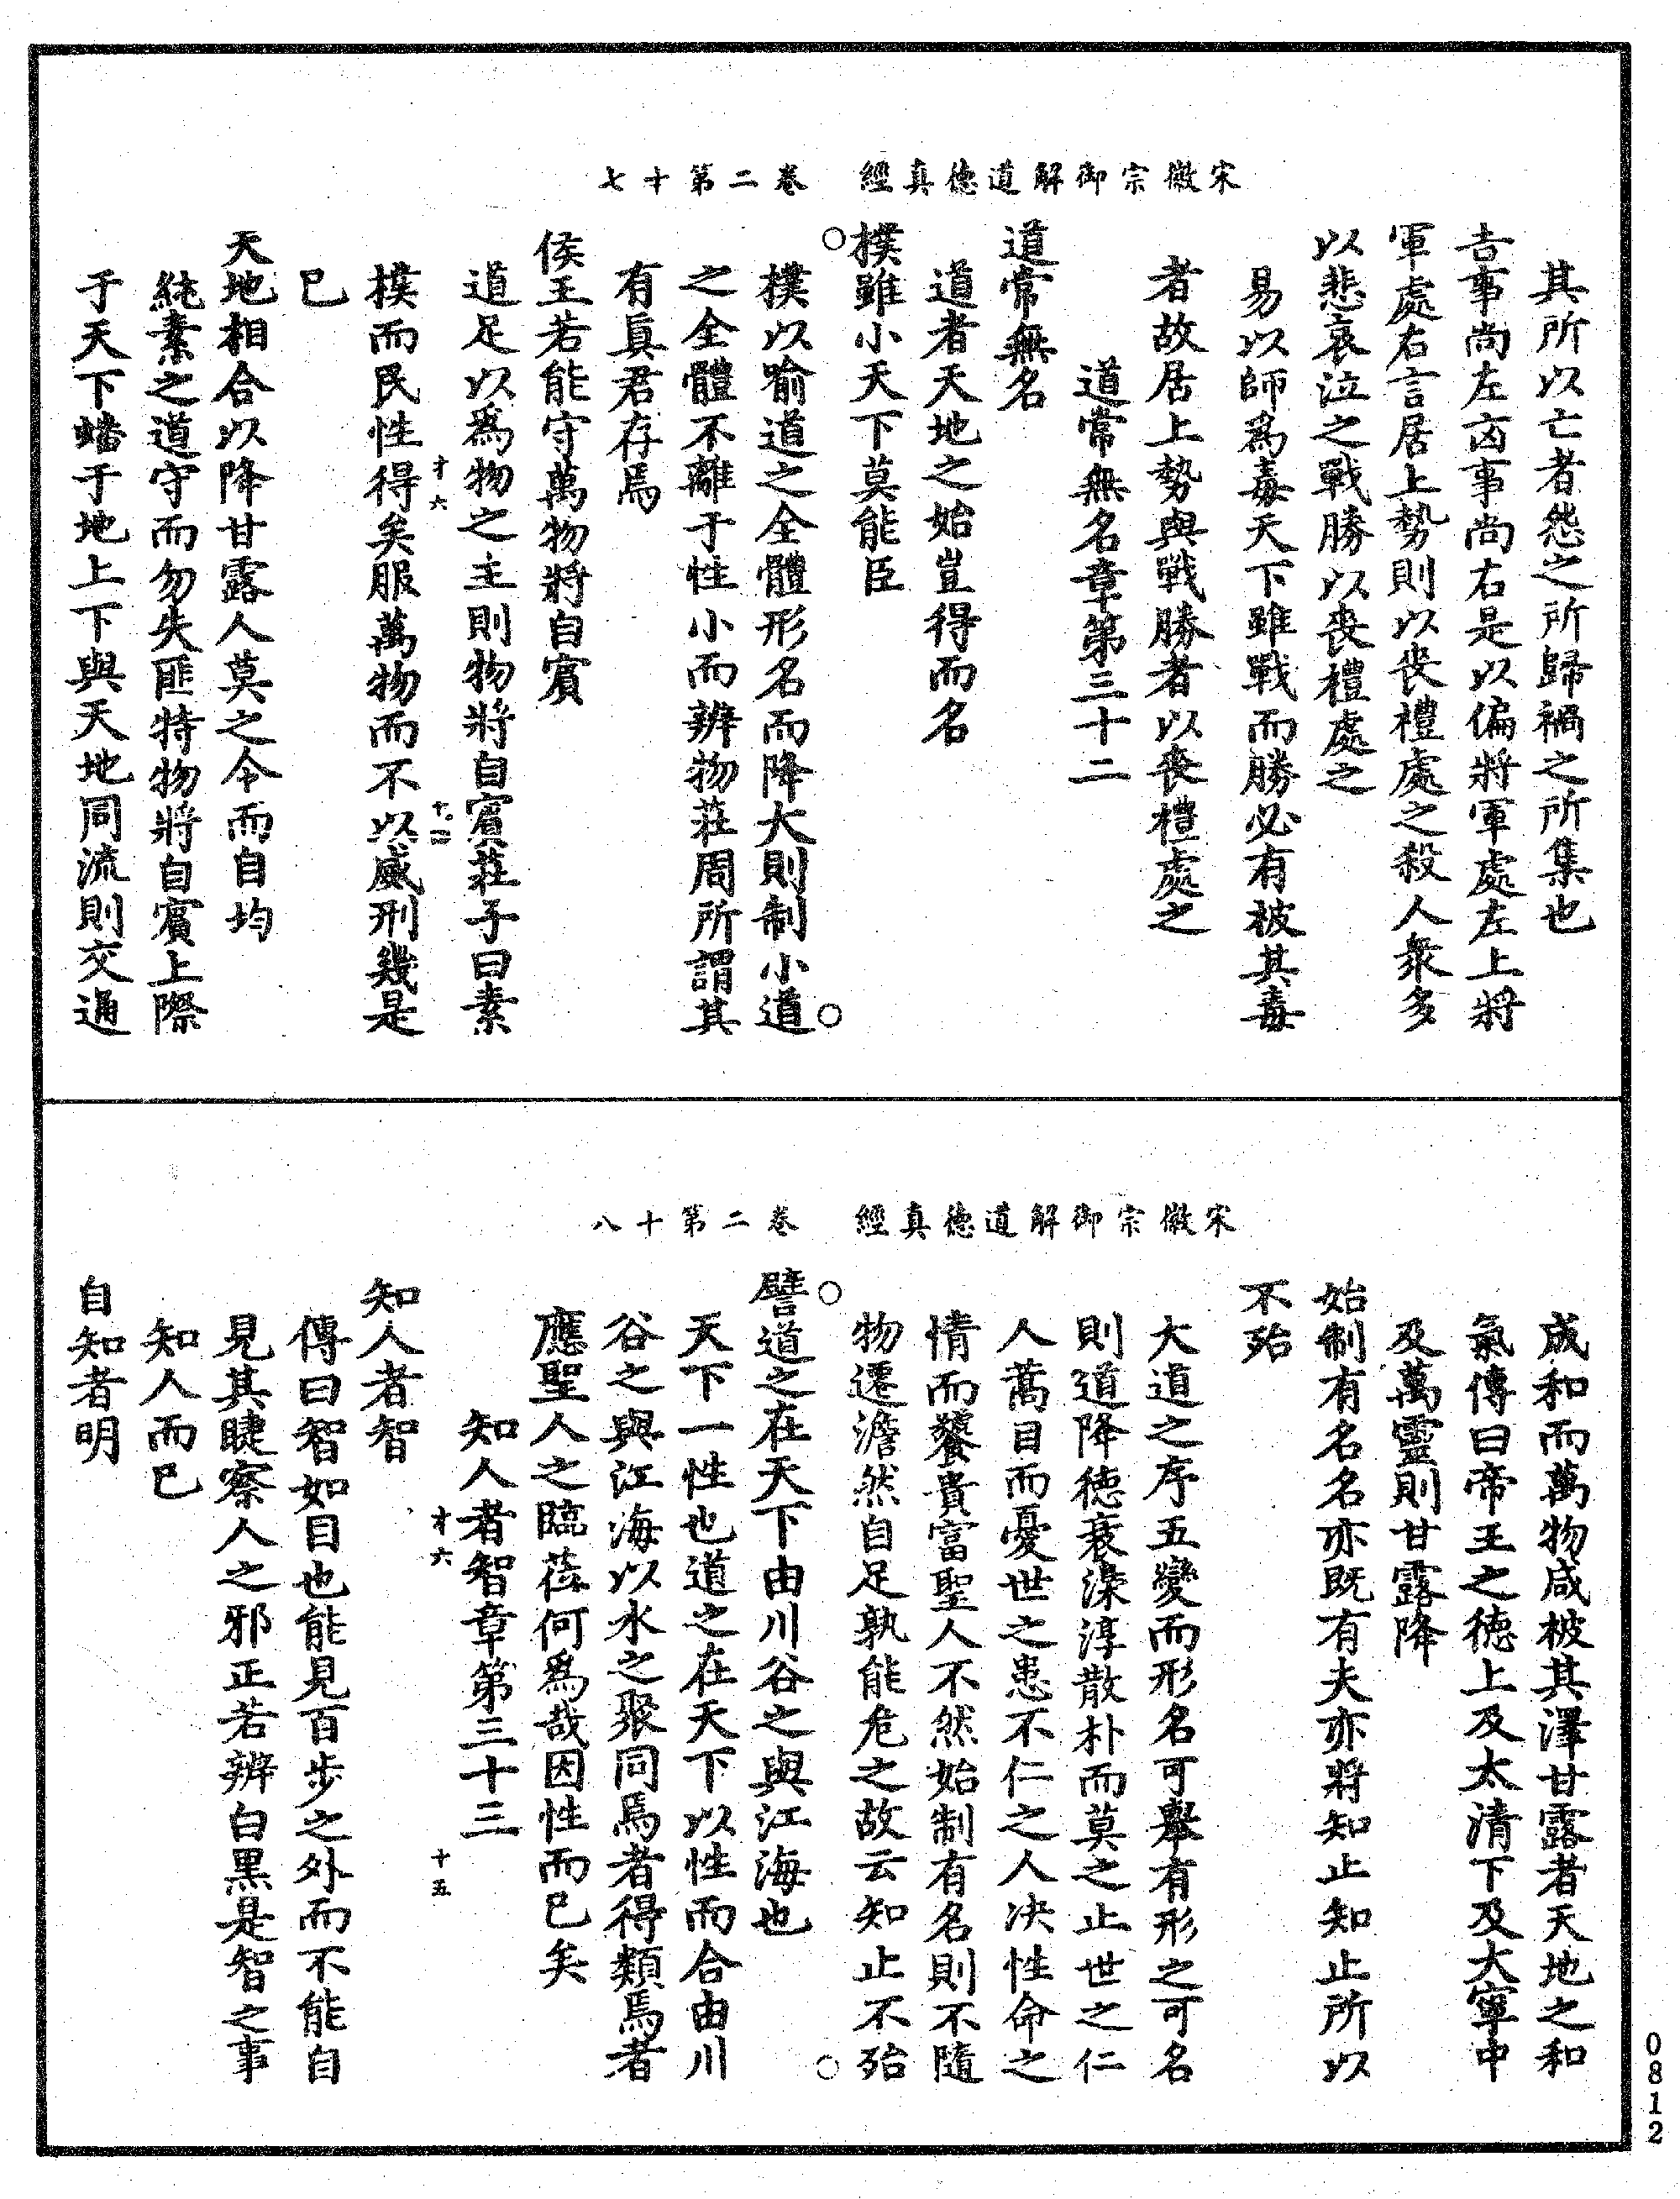 宋徽宗御解道德真經　卷二第十七
其所以亡者怨之所歸禍之所集也
吉事尚左凶事尚右是以偏將軍處左上將
軍處右言居上勢則以喪禮處之殺人衆多
以悲哀泣之戰勝以喪禮處之
易以師爲毒天下雖戰而勝必有被其毒
者故居上勢與戰勝者以喪禮處之
道常無名章第三十二
道常無名
道者天地之始豈得而名
樸雖小天下莫能臣
樸以喻道之全體形名而降大則制小道
之全體不離于性小而辨物莊周所謂其
有眞君存焉
侯王若能守萬物將自賓
道足以爲物之主則物將自賓莊子曰素
才六　十二
樸而民性得矣服萬物而不以威刑幾是
已
天地相合以降甘露人莫之令而自均
純素之道守而勿失匪特物將自賓上際
于天下蟠于地上下與天地同流則交通
宋徽宗御解道德真經　卷二第十八
成和而萬物咸被其澤甘露者天地之和
氣傳曰帝王之德上及太清下及大寧中
及萬靈則甘露降
始制有名名亦既有夫亦將知止知止所以
不殆
大道之序五變而形名可舉有形之可名
則道降德衰澆淳散朴而莫之止世之仁
人蒿目而憂世之患不仁之人决性命之
情而饕貴富聖人不然始制有名則不隨
物遷澹然自足孰能危之故云知止不殆
譬道之在天下由川谷之與江海也
天下一性也道之在天下以性而合由川
谷之與江海以水之聚同焉者得類焉者
應聖人之臨莅何爲哉因性而已矣
知人者智章第三十三
才六　十五
知人者智
傳曰智如目也能見百步之外而不能自
見其睫察人之邪正若辨白黑是智之事
知人而已
自知者明
0812